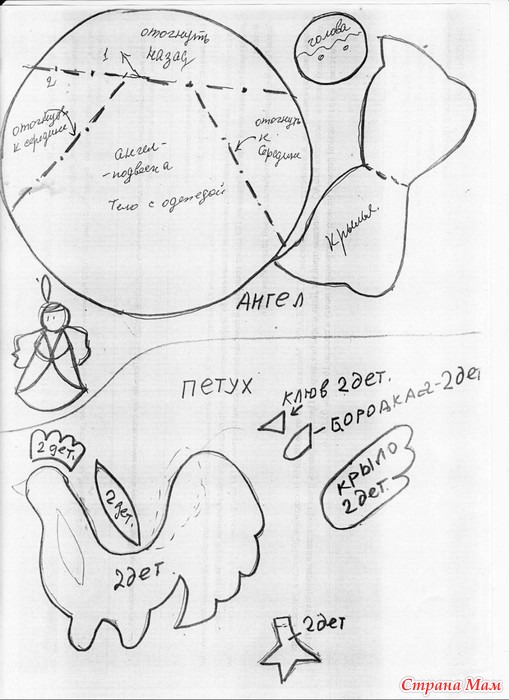 отогнуть
назад
1
2
голова
отогнуть
к середине
отогнуть
к
середине
ангел-
-подвеска
Тело с одеждой
Крылья
АНГЕЛ
ПЕТУХ
КЛЮВ 2дет.
БОРОДКА-2-2дет
2 дет.
2 дет.
КРЫЛО
2дет.
2дет
2дет
Страна Мам